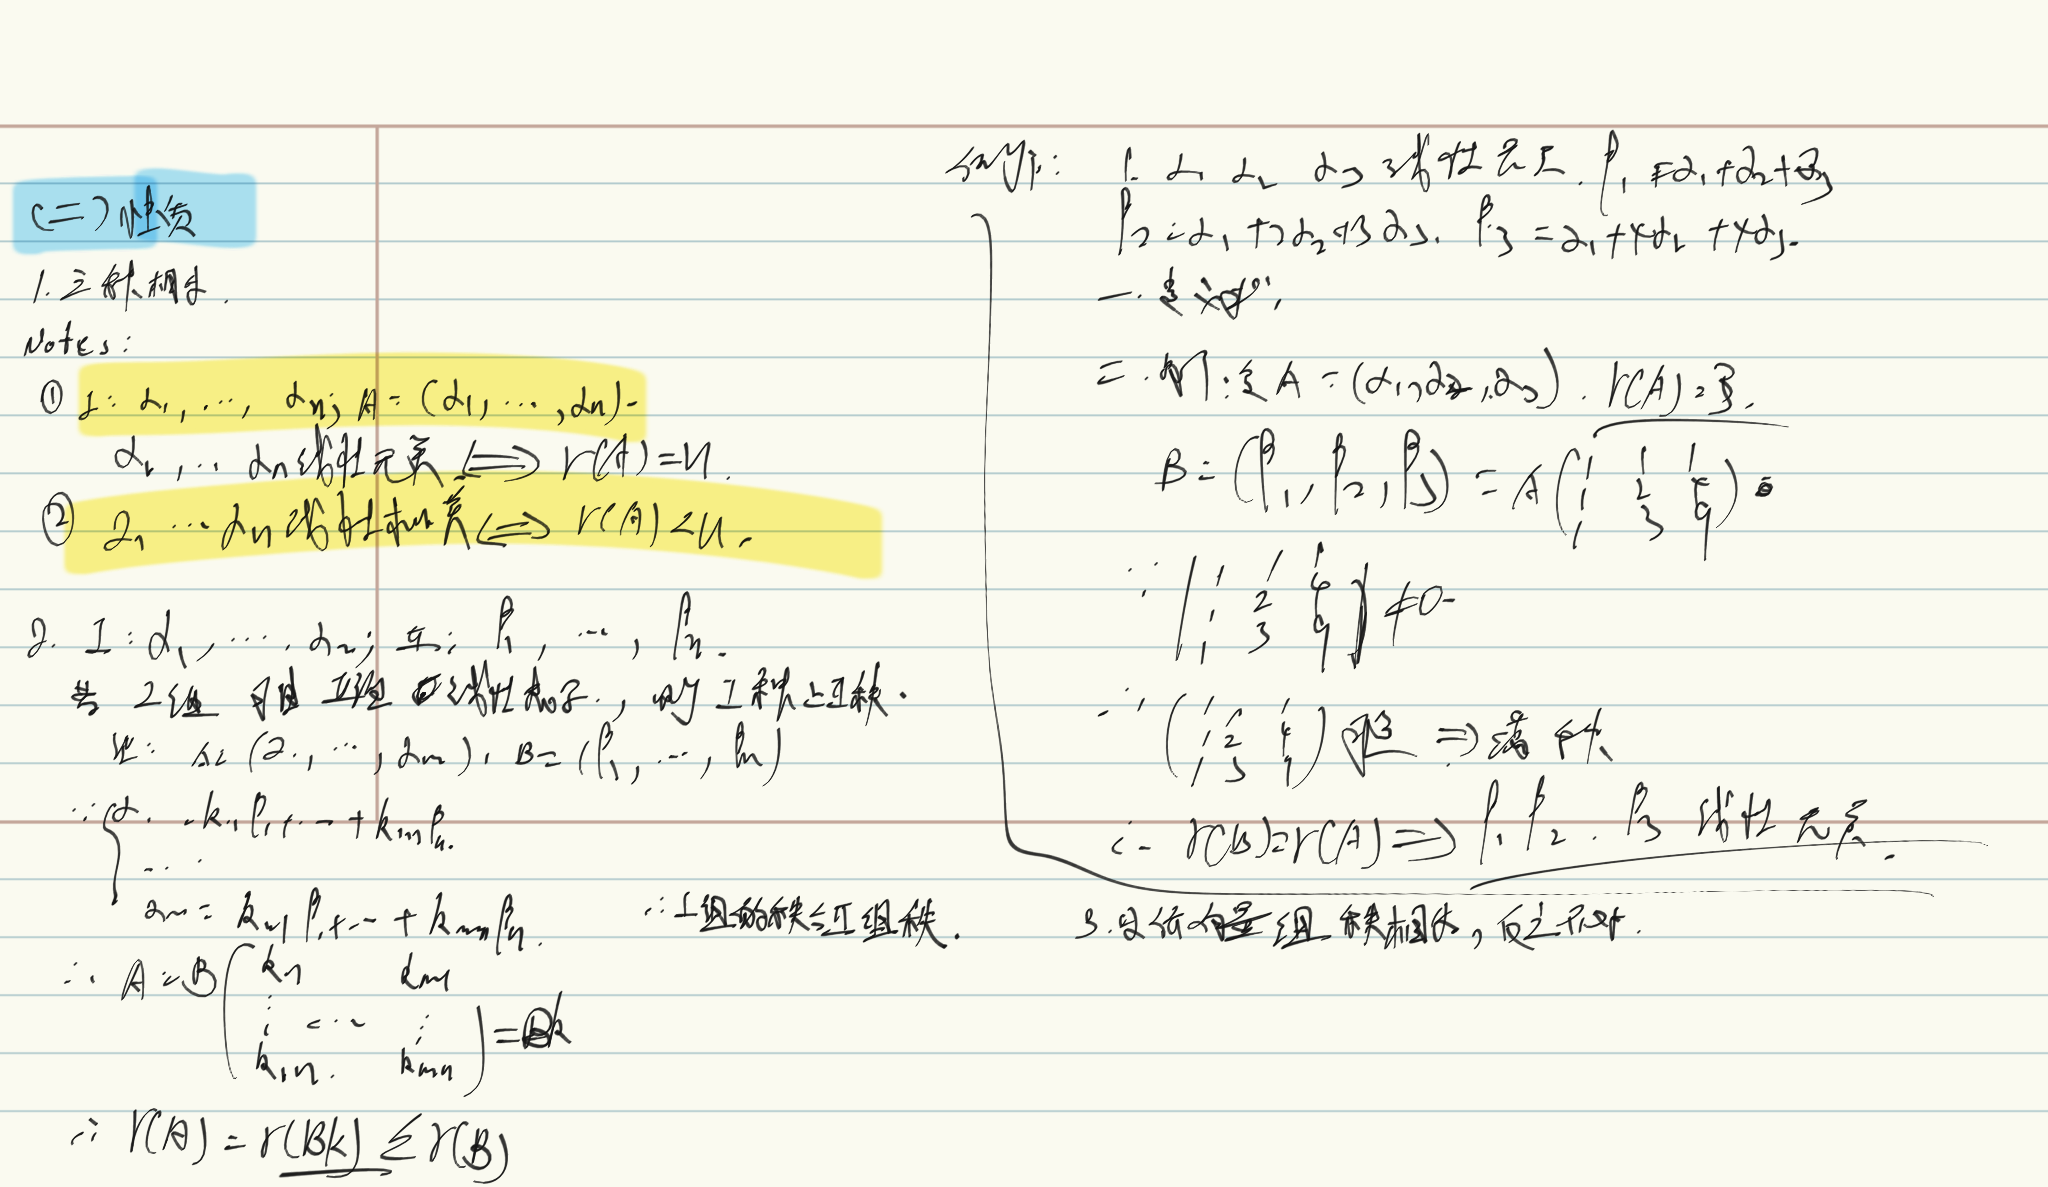 (二)性质
1.三秩相等.
Notes:
① I: α₁, ..., αn; A=(α₁, ..., αn).
α₁, ... αn线性无关 ⟺ r(A)=n.
② α₁ ... αn线性相关 ⟺ r(A)<n.
2. I: α₁, ..., αm; II: β₁, ..., βn.
若 I组可由II组线性表示, 则I秩≤II秩.
证: A=(α₁, ..., αm), B=(β₁, ..., βn)
∵ { α₁=k₁₁β₁+...+k₁nβn.
...
αm=km₁β₁+...+kmnβn.
∴ A=B( k₁₁ km₁
⋮ ... ⋮
k₁n. kmn ) =Bk
∴ r(A)=r(Bk)≤r(B)
∴ I组的秩≤II组秩.
例: 1. α₁ α₂ α₃线性无关. β₁=α₁+α₂+α₃
β₂=α₁+2α₂+3α₃. β₃=α₁+4α₂+9α₃.
一.定义法;
二.秩: 令A=(α₁,α₂,α₃). r(A)=3.
B=(β₁,β₂,β₃)=A( 1 1 1
1 2 4
1 3 9 )
∵ | 1 1 1
1 2 4
1 3 9 | ≠0.
∴ ( 1 1 1
1 2 4
1 3 9 ) 可逆 ⟹ 满秩
∴ r(B)=r(A) ⟹ β₁ β₂. β₃ 线性无关.
3. 等价向量组秩相等, 反之不对.